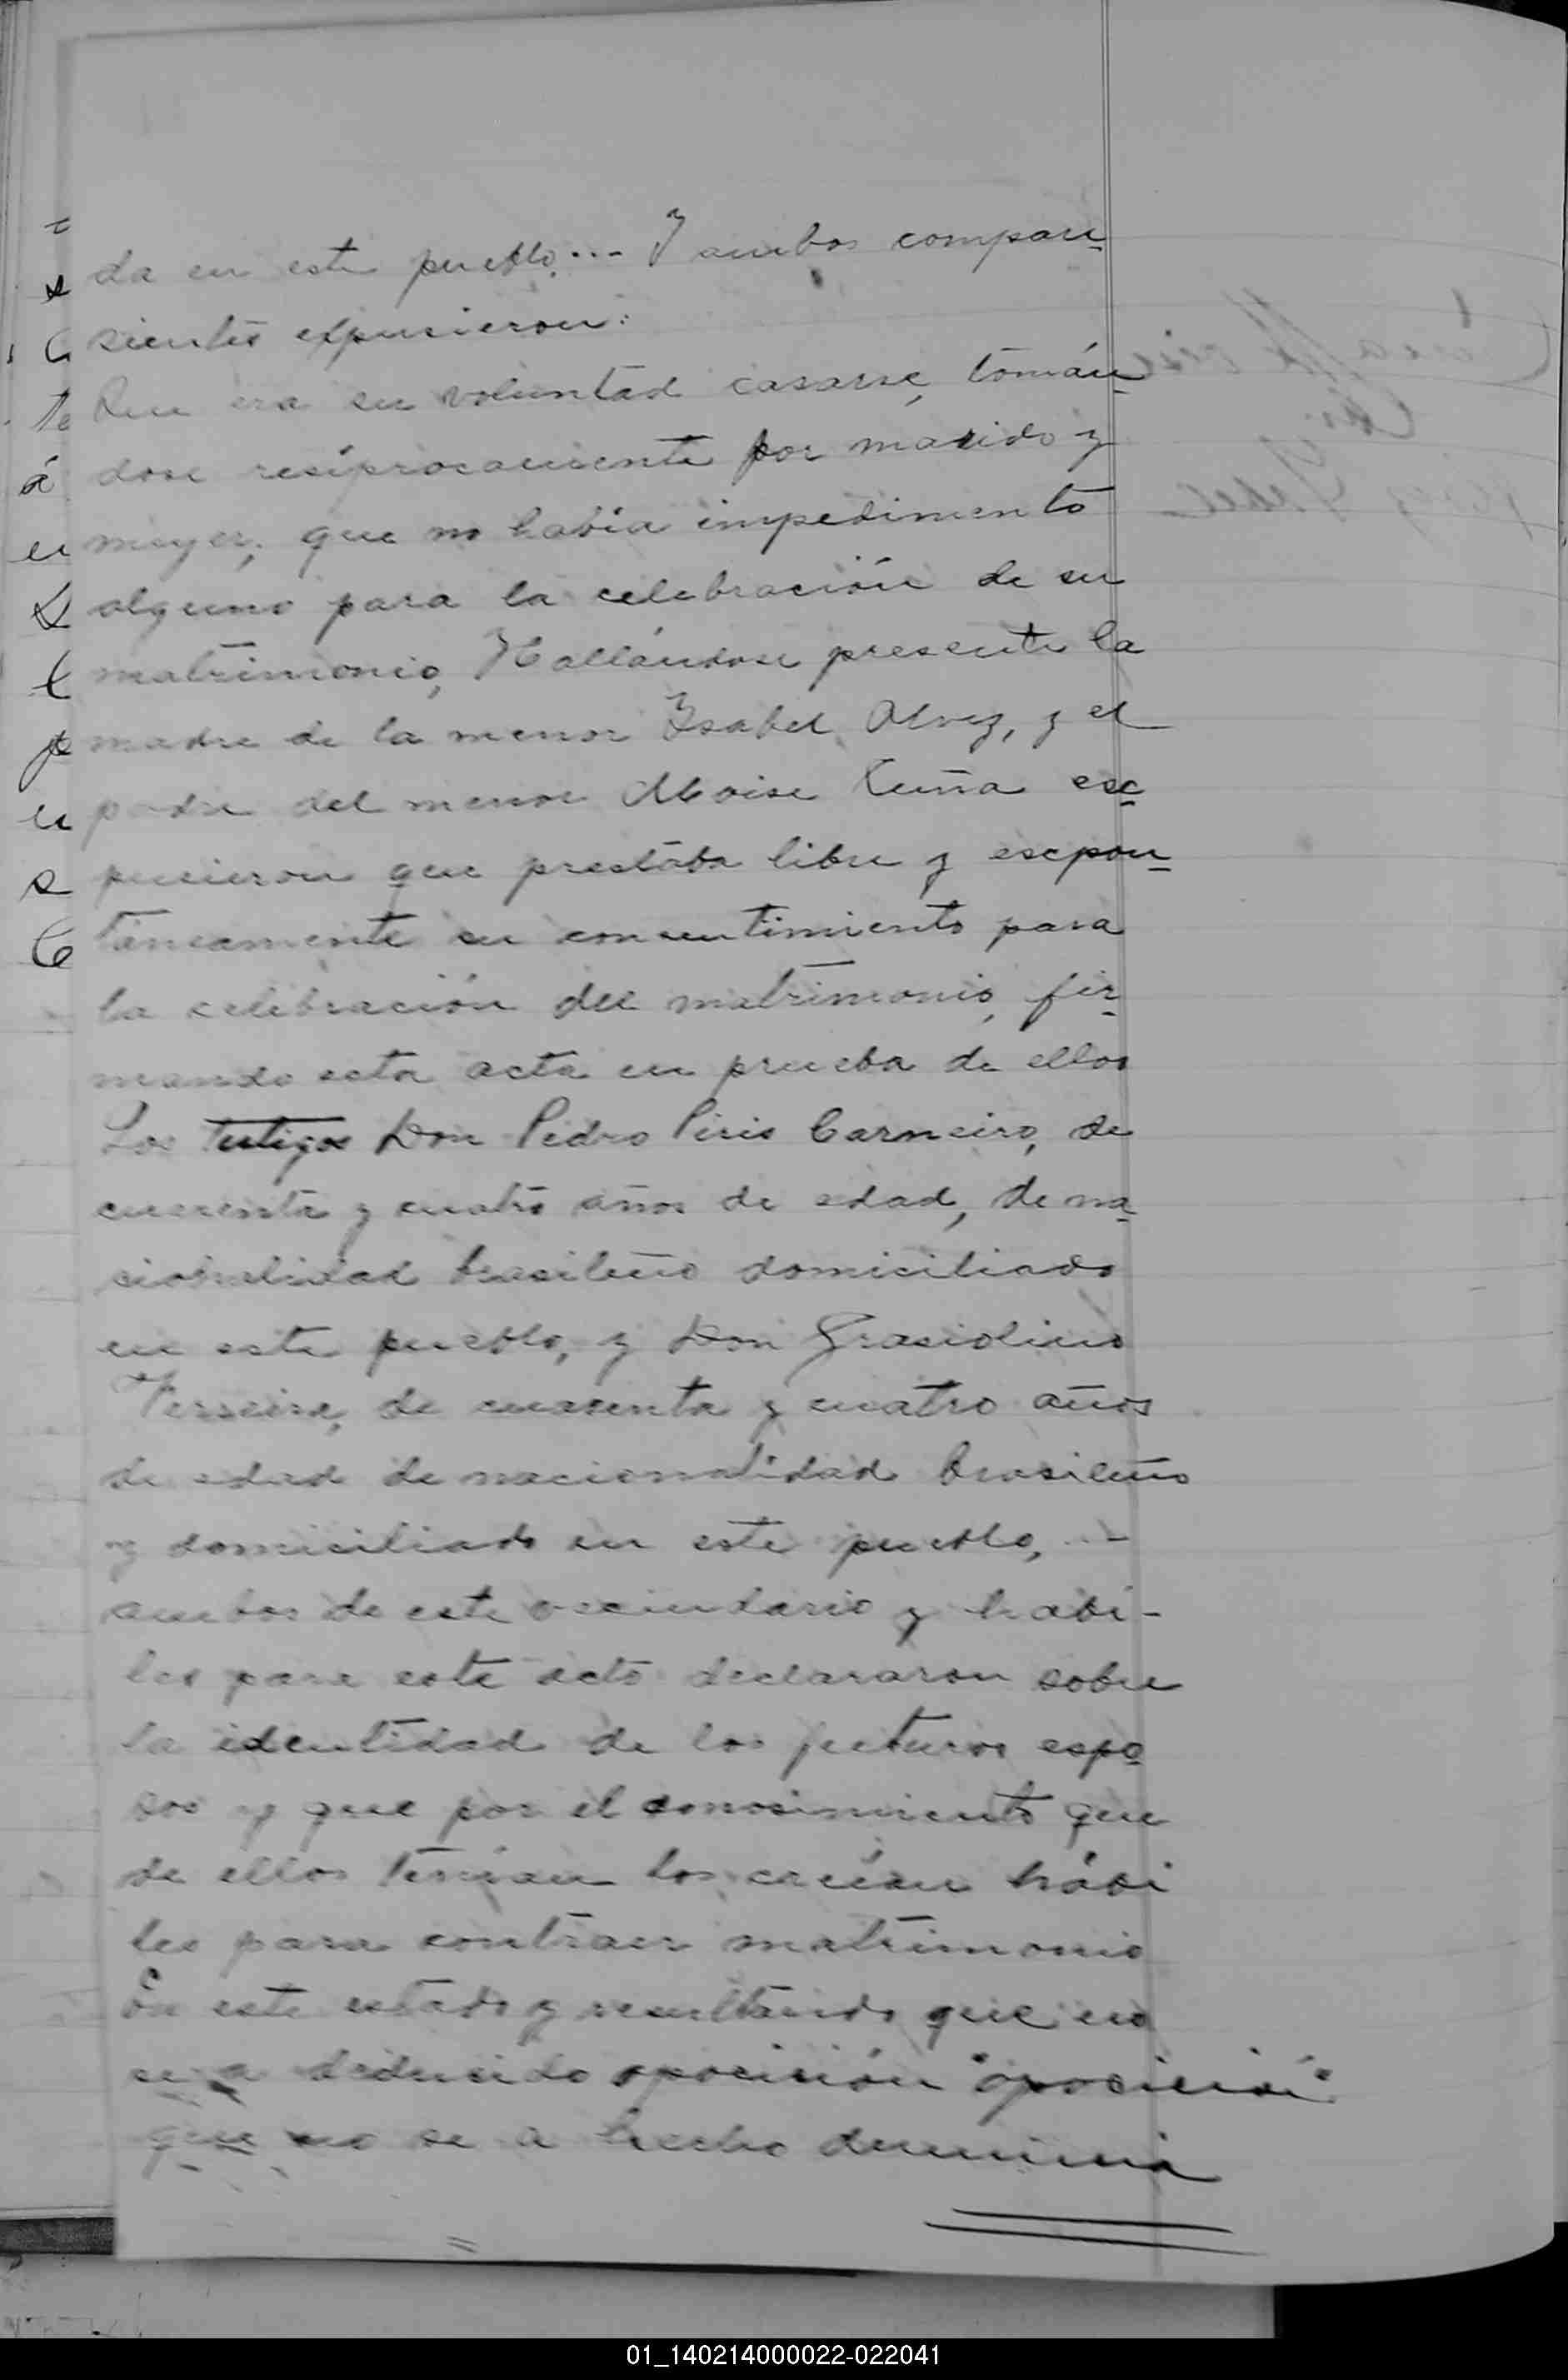 da en este pueblo... Y ambos compare
sientes espusieron:
Que era su voluntad casarse, tomán
dose resíprocamente por marido y
muger, que no había impedimento
alguno para la celebración de su
matrimonio, Hallándose presente la
madre de la menor Isabel Alvez, y el
padre del menor Moise Cuña esc
pusieron que prestaba libre y escpon
táneamente su consentimiento para
la celebración del matrimonio, fir
mando esta acta en prueba de ellos
Los testigos Don Pedro Piris Carneiro, de
cuerenta y cuatro años de edad, de na
sionalidad brasileño domiciliado
en este pueblo, y Don Grasiolino
Ferreira, de cuarenta y cuatro años
de edad de nacionalidad brasileño
y domiciliado en este pueblo, ..-
ambos de este vecindario y habi-
les para este acto declararon sobre
la identidad de los futuros espo
sos y que por el conosimiento que
de ellos tenían los creían hábi
les para contraer matrimonio
En este estado y resultando que no
se a dedusido oposición "oposición"
que no se a hecho denuncia
01_140214000022-022041